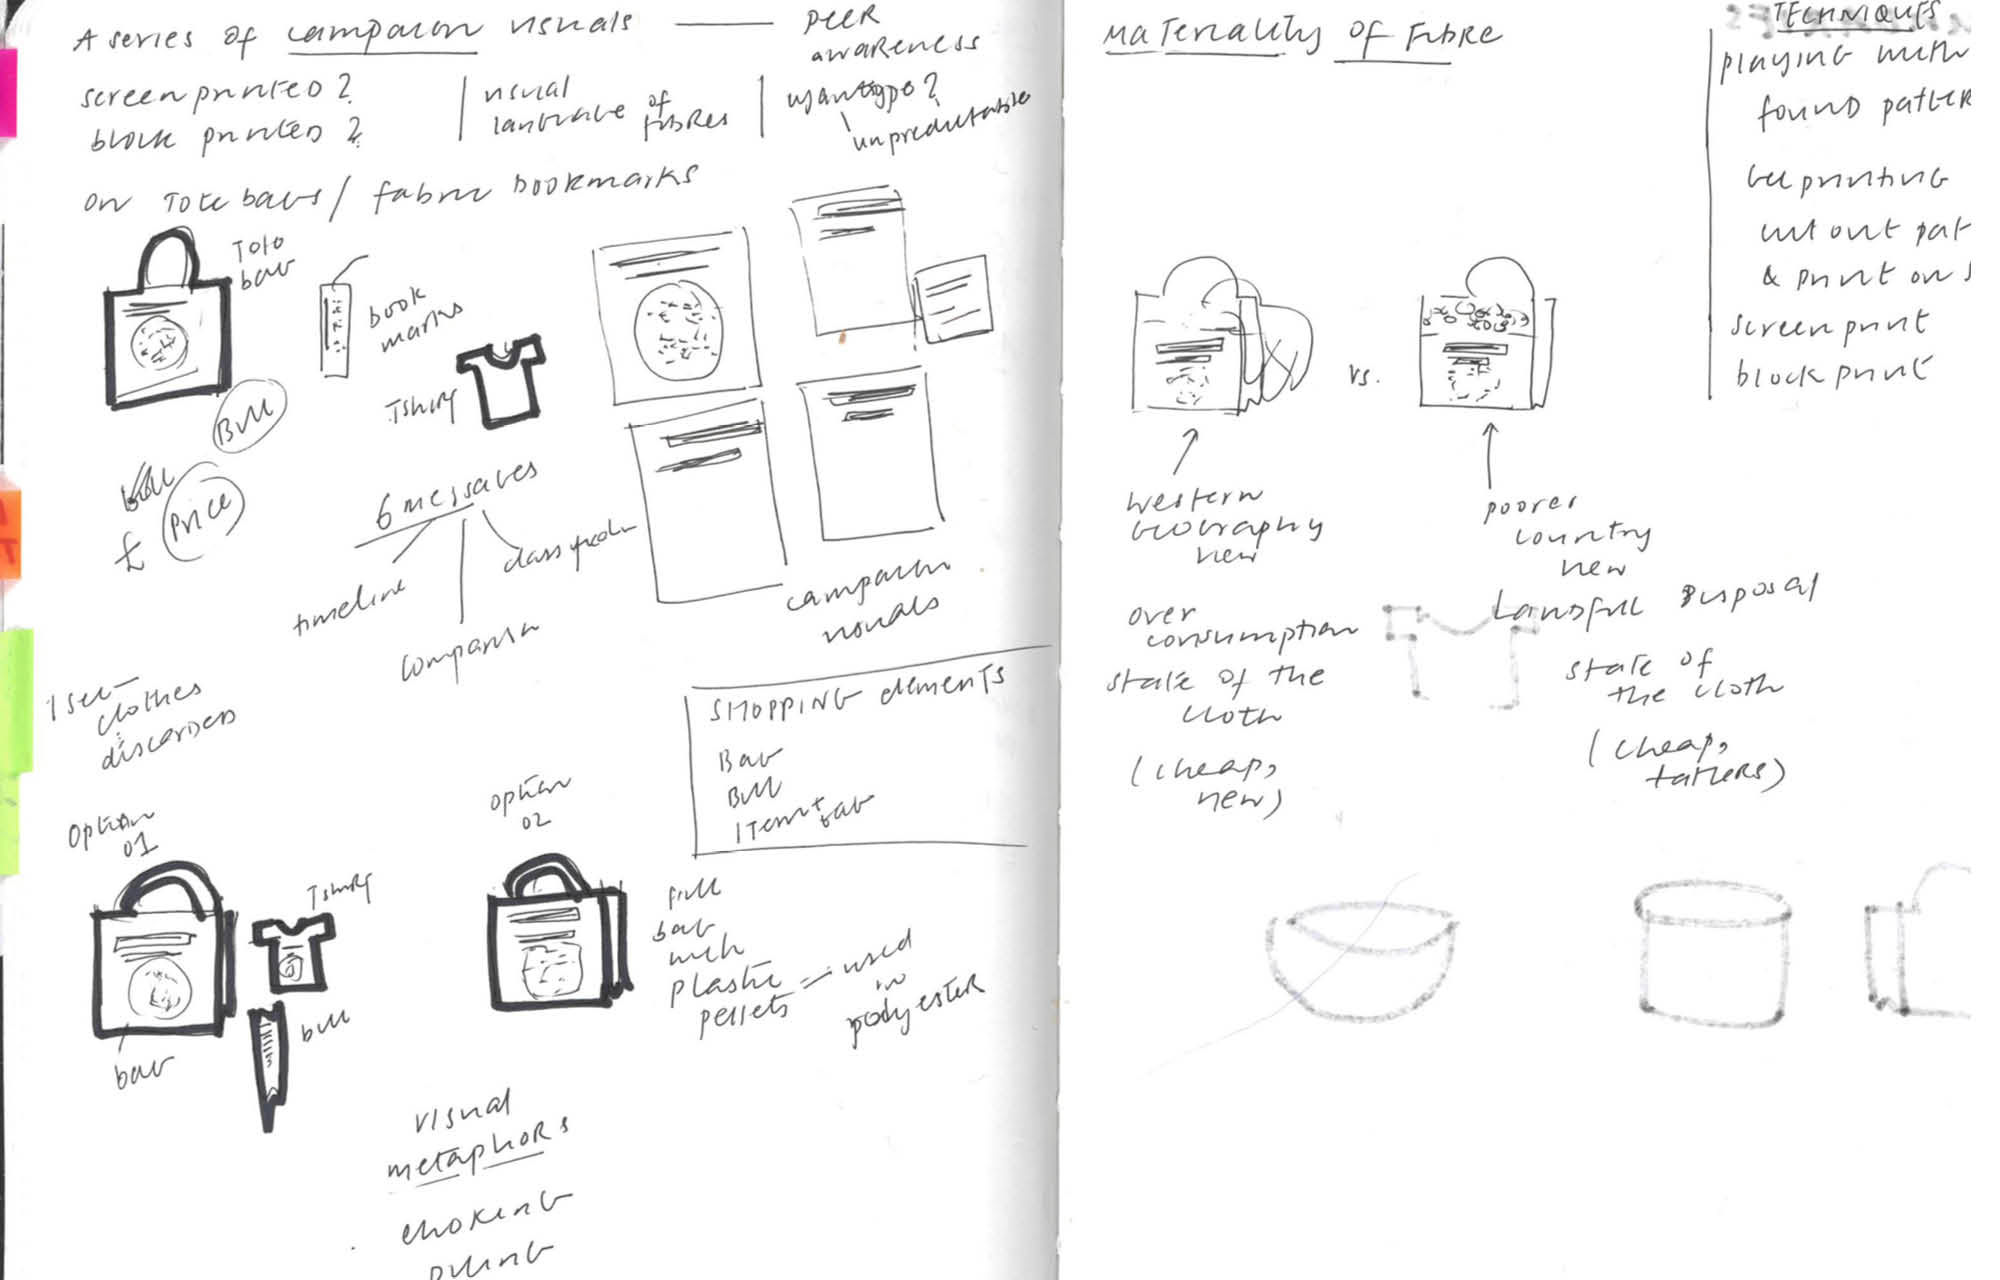 A series of campaign visuals — peer
awareness
screen printed?
block printed?
visual
language of
fibres
cyanotype?
unpredictable
on Tote bags / fabric bookmarks
Tote
bag
book
marks
Tshirt
Bill
Bill
£ Price
6 messages
timeline
comparison
campaign
visuals
1 sec —
clothes
discarded
SHOPPING elements
Bag
Bill
Item tag
Option
01
Tshirt
bill
bag
option
02
fill
bag
with
plastic
pellets = used
in
polyester
visual
metaphors
choking
piling
Materiality of Fibre
vs.
western
geography
new
over
consumption
state of the
cloth
(cheap,
new)
poorer
country
new
Landfill disposal
state of
the cloth
(cheap,
tatters)
TECHNIQUES
playing with
found patter
gel printing
cut out pat
& print on
screen print
block print